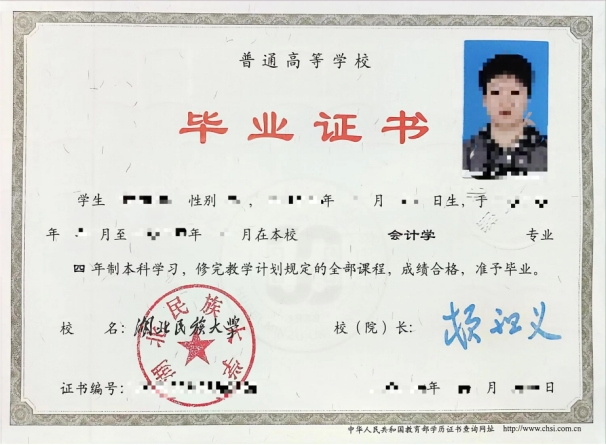 普通高等学校
毕业证书
学生 性别 , 年 月 日生, 于
年 月至 年 月在本校 会计学 专业
四 年制本科学习，修完教学计划规定的全部课程，成绩合格，准予毕业。
校 名: 湖北民族大学 校（院）长:
湖北民族大学
证书编号: 年 月 日
中华人民共和国教育部学历证书查询网址 http://www.chsi.com.cn